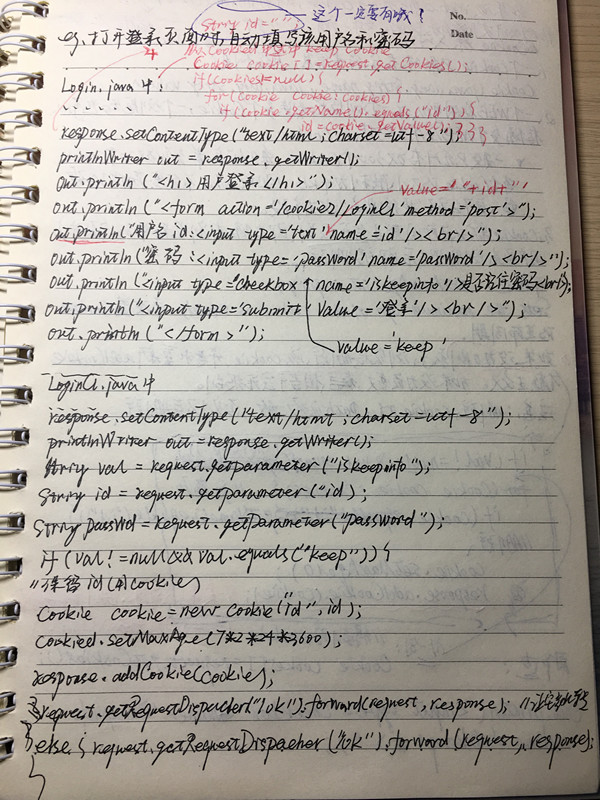 String id="";
这个一定要有哦！
No.
Date
eg.打开登录页面时,自动填写该用户名和密码
从Cookies中 keep cookie
Cookie cookie[]=request.getCookies();
if(Cookies!=null){
for(Cookie cookie:cookies){
if(cookie.getName().equals("id")){
id=cookie.getValue();}}}
Login.java中:
......
response.setContentType("text/html;charset=utf-8");
printlnWriter out=response.getWriter();
out.println("<h1>用户登录</h1>");
value='"+id+"'
out.println("<form action='/cookie2/LoginCl' method='post'>");
out.println("用户名id:<input type='text' name='id'/><br/>");
out.println("密码:<input type='password' name='password'/><br/>");
out.println("<input type='checkbox' name='iskeepinfo'/>是否记住密码<br/>");
out.println("<input type='submit' value='登录'/><br/>");
out.println("</form>");
value='keep'
LoginCl.java中
response.setContentType("text/html;charset=utf-8");
printlnWriter out=response.getWriter();
String val=request.getparameter("iskeepinfo");
String id=request.getparameter("id);
String passWd=request.getparameter("password");
if(val!=null&&val.equals("keep")){
//保留id(用cookie)
Cookie cookie=new cookie("id",id);
cookied.setMaxAge(7*2*24*3600);
response.addCookie(cookie);
request.getRequestDispacher("ok").forward(request,response);
}else{request.getRequestDispacher("ok").forward(request,response);
}